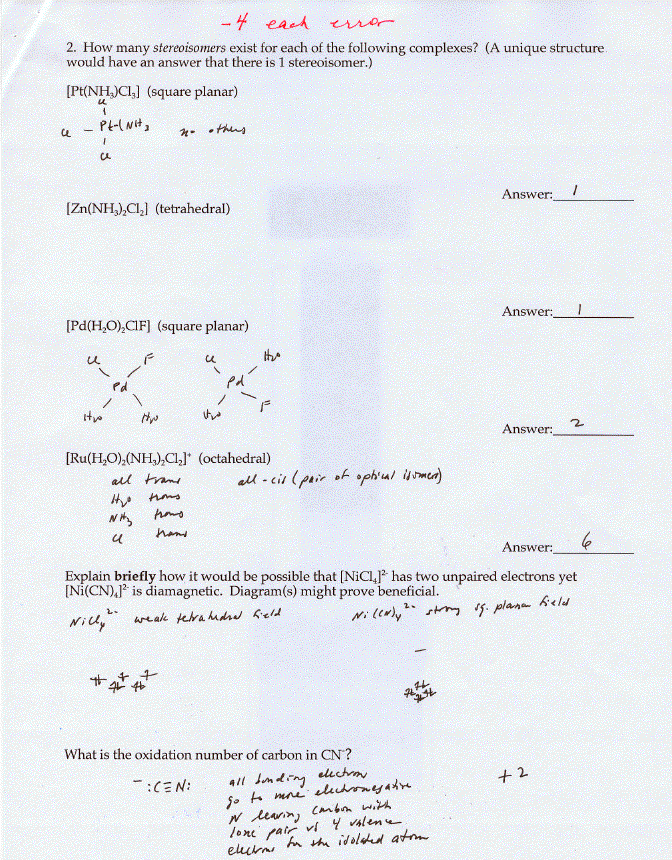 -4 each error
2. How many stereoisomers exist for each of the following complexes? (A unique structure
would have an answer that there is 1 stereoisomer.)
[Pt(NH₃)Cl₃] (square planar)
Cl
Cl - Pt - NH₃ no others
Cl
Answer: 1
[Zn(NH₃)₂Cl₂] (tetrahedral)
Answer: 1
[Pd(H₂O)₂ClF] (square planar)
Cl F Cl H₂O
Pd Pd
H₂O H₂O H₂O F
Answer: 2
[Ru(H₂O)₂(NH₃)₂Cl₂]⁺ (octahedral)
all trans all-cis (pair of optical isomers)
H₂O trans
NH₃ trans
Cl trans
Answer: 6
Explain briefly how it would be possible that [NiCl₄]²⁻ has two unpaired electrons yet
[Ni(CN)₄]²⁻ is diamagnetic. Diagram(s) might prove beneficial.
NiCl₄²⁻ weak tetrahedral field Ni(CN)₄²⁻ strong sq. planar field
What is the oxidation number of carbon in CN⁻?
⁻:C≡N: all bonding electron +2
go to more electronegative
N leaving carbon with
lone pair vs 4 valence
electrons for the isolated atom